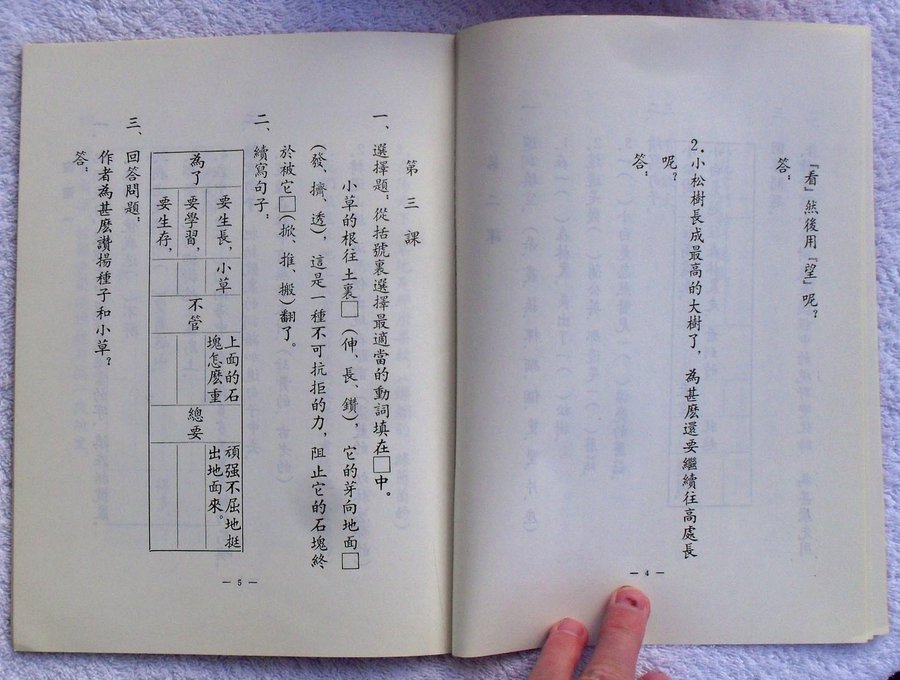 「看」然後用「望」呢？
答：
2.小松樹長成最高的大樹了，為甚麽還要繼續往高處長
呢？
答：
— 4 —
第三課
一、選擇題：從括號裏選擇最適當的動詞填在□中。
小草的根往土裏□（伸、長、鑽），它的芽向地面□
（發、擠、透），這是一種不可抗拒的力，阻止它的石塊終
於被它□（掀、推、搬）翻了。
二、續寫句子：
為了
要生長，小草
要學習，
要生存，
不管
上面的石
塊怎麽重
總要
頑强不屈地挺
出地面來。
三、回答問題：
作者為甚麽讚揚種子和小草？
答：
— 5 —